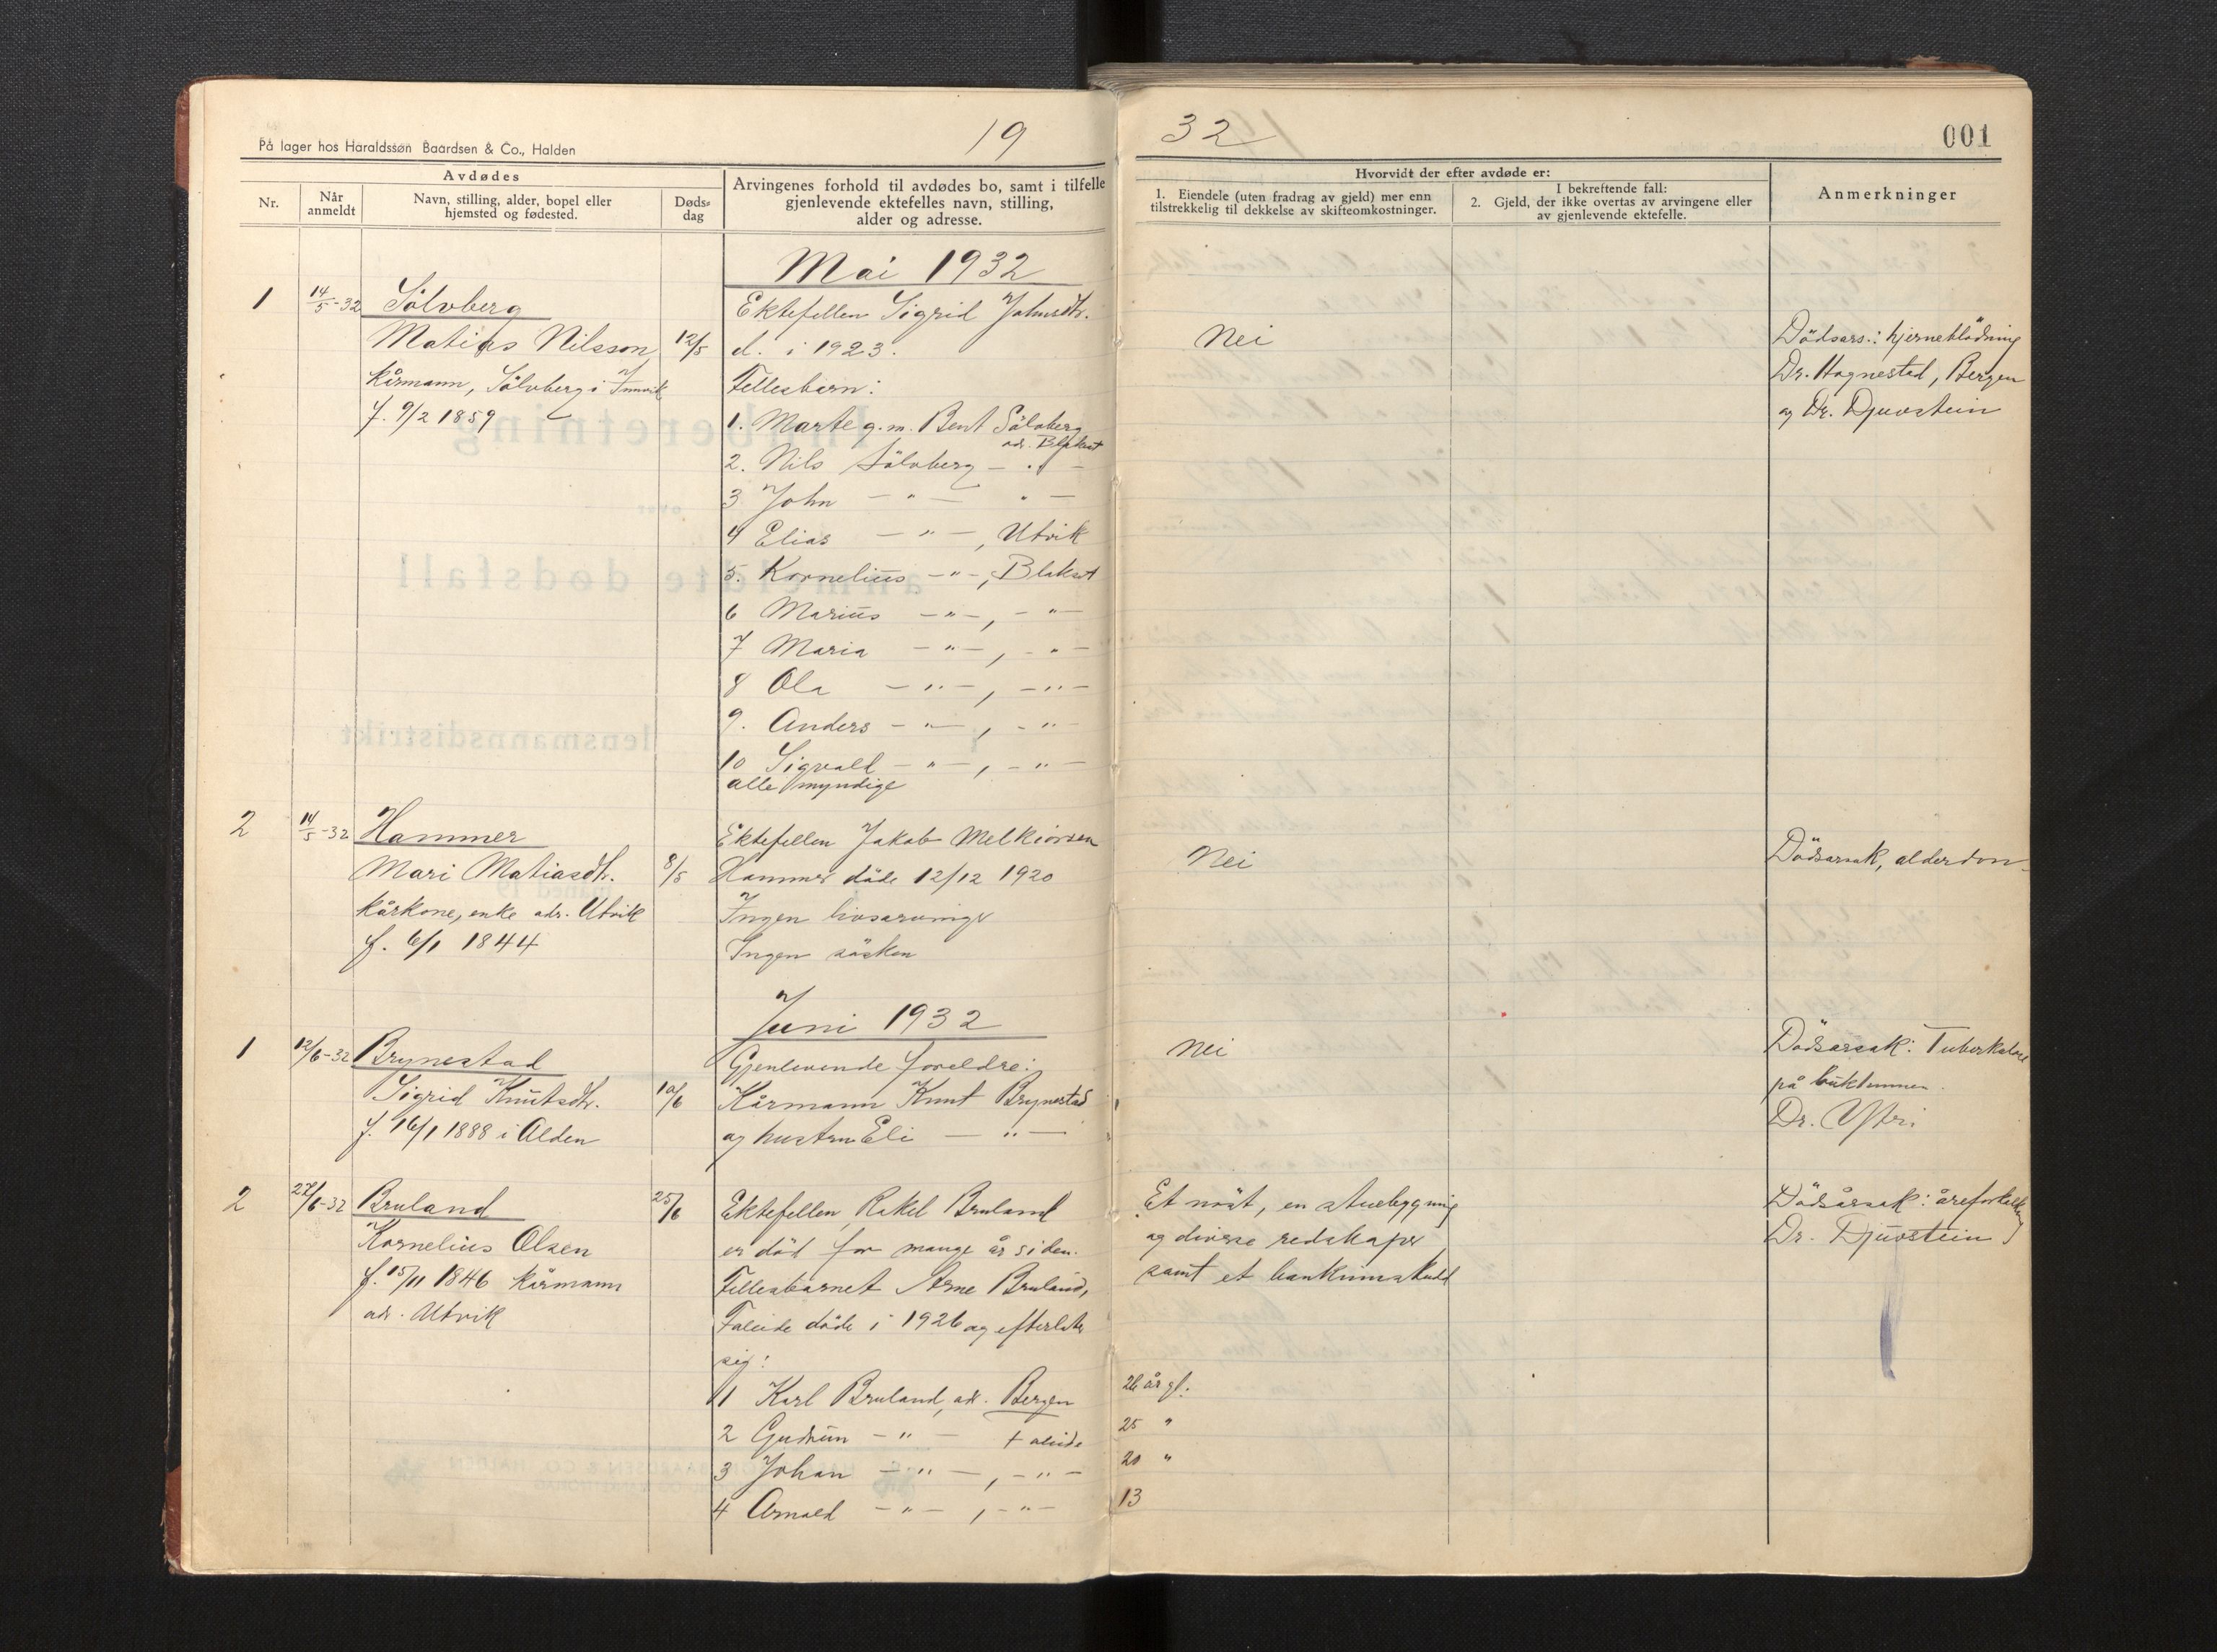 På lager hos Haraldssøn Baardsen & Co., Halden
19
32
001
Avdødes
Nr.
Når anmeldt
Navn, stilling, alder, bopel eller hjemsted og fødested.
Døds-dag
Arvingenes forhold til avdødes bo, samt i tilfelle gjenlevende ektefelles navn, stilling, alder og adresse.
Hvorvidt der efter avdøde er:
1. Eiendele (uten fradrag av gjeld) mer enn tilstrekkelig til dekkelse av skifteomkostninger.
I bekreftende fall:
2. Gjeld, der ikke overtas av arvingene eller av gjenlevende ektefelle.
Anmerkninger
Mai 1932
1 14/5-32 Sölvberg
Matias Nilsson, 12/5
kårmann, Sölvberg i Innvik
f. 9/2 1859
Ektefellen Sigrid Johnsdtr.
d. i 1923.
Fellesbarn:
1. Marte g.m. Bent Sölvberg
adr. Blakset
2. Nils Sölvberg - " -
3 John - " - " -
4 Elias - " -, Utvik
5. Kornelius - " -, Blakset
6 Marius - " -, - " -
7 Maria - " -, - " -
8 Ola - " -, - " -
9. Anders - " -, - " -
10 Sigvald - " -, - " -
alle myndige
Nei
Dödsårs.: hjerneblödning
Dr. Hognestad, Bergen
og Dr. Djuvstein
2 14/5-32 Hammer
Mari Matiasdtr. 8/5
kårkone, enke adr. Utvik
f. 6/1 1844
Ektefellen Jakob Melkiorsen
Hammer döde 12/12 1920
Ingen livsarvinger
Ingen sösken
Nei
Dödsarsak, alderdom
Juni 1932
1 12/6-32 Brynestad
Sigrid Knutsdtr. 10/6
f. 16/1 1888 i Alden
Gjenlevende foreldre:
Kårmann Knut Brynestad
og hustru Eli - " -
Nei
Dödsarsak: Tuberkulose
på
Dr. Ytri
2 27/6-32 Bruland 25/6
Kornelius Olsen
f. 15/11 1846 kårmann
adr. Utvik
Ektefellen Rakel Bruland
er död for mange år siden.
Fellesbarnet Arne Bruland,
Faleide döde i 1926 og efterlater
sig:
1 Karl Bruland, adr. Bergen 26 år gl.
2 Gudrun - " - Faleide 25 "
3 Johan - " -, - " - 20 "
4 Arnold - " -, - " - 13
Et nöst, en stuebygning
og diverse redskaper
samt et bankinnskudd
Dödsårsak: åreforkalkning
Dr. Djuvstein